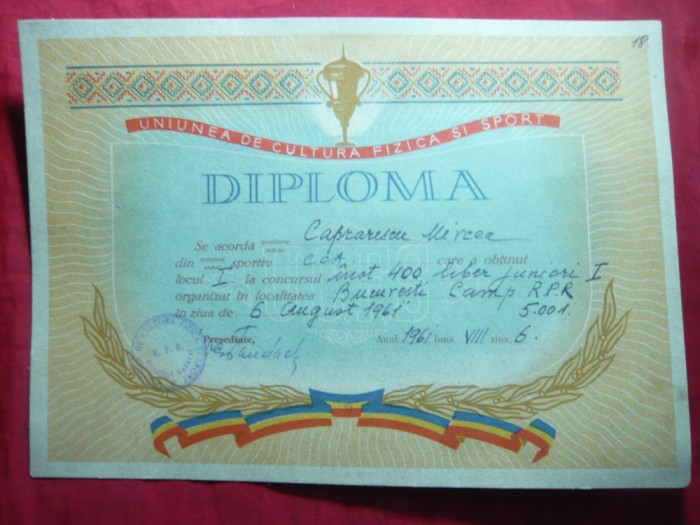 18.
UNIUNEA DE CULTURA FIZICA SI SPORT
DIPLOMA
Se acordă Caprarescu Mircea
din sportiv CCA care a obținut
locul I la concursul înot 400 liber juniori I
organizat în localitatea Bucuresti Camp R.P.R
în ziua de 6 August 1961 5.001.
Președinte, Anul 1961 luna VIII ziua 6.